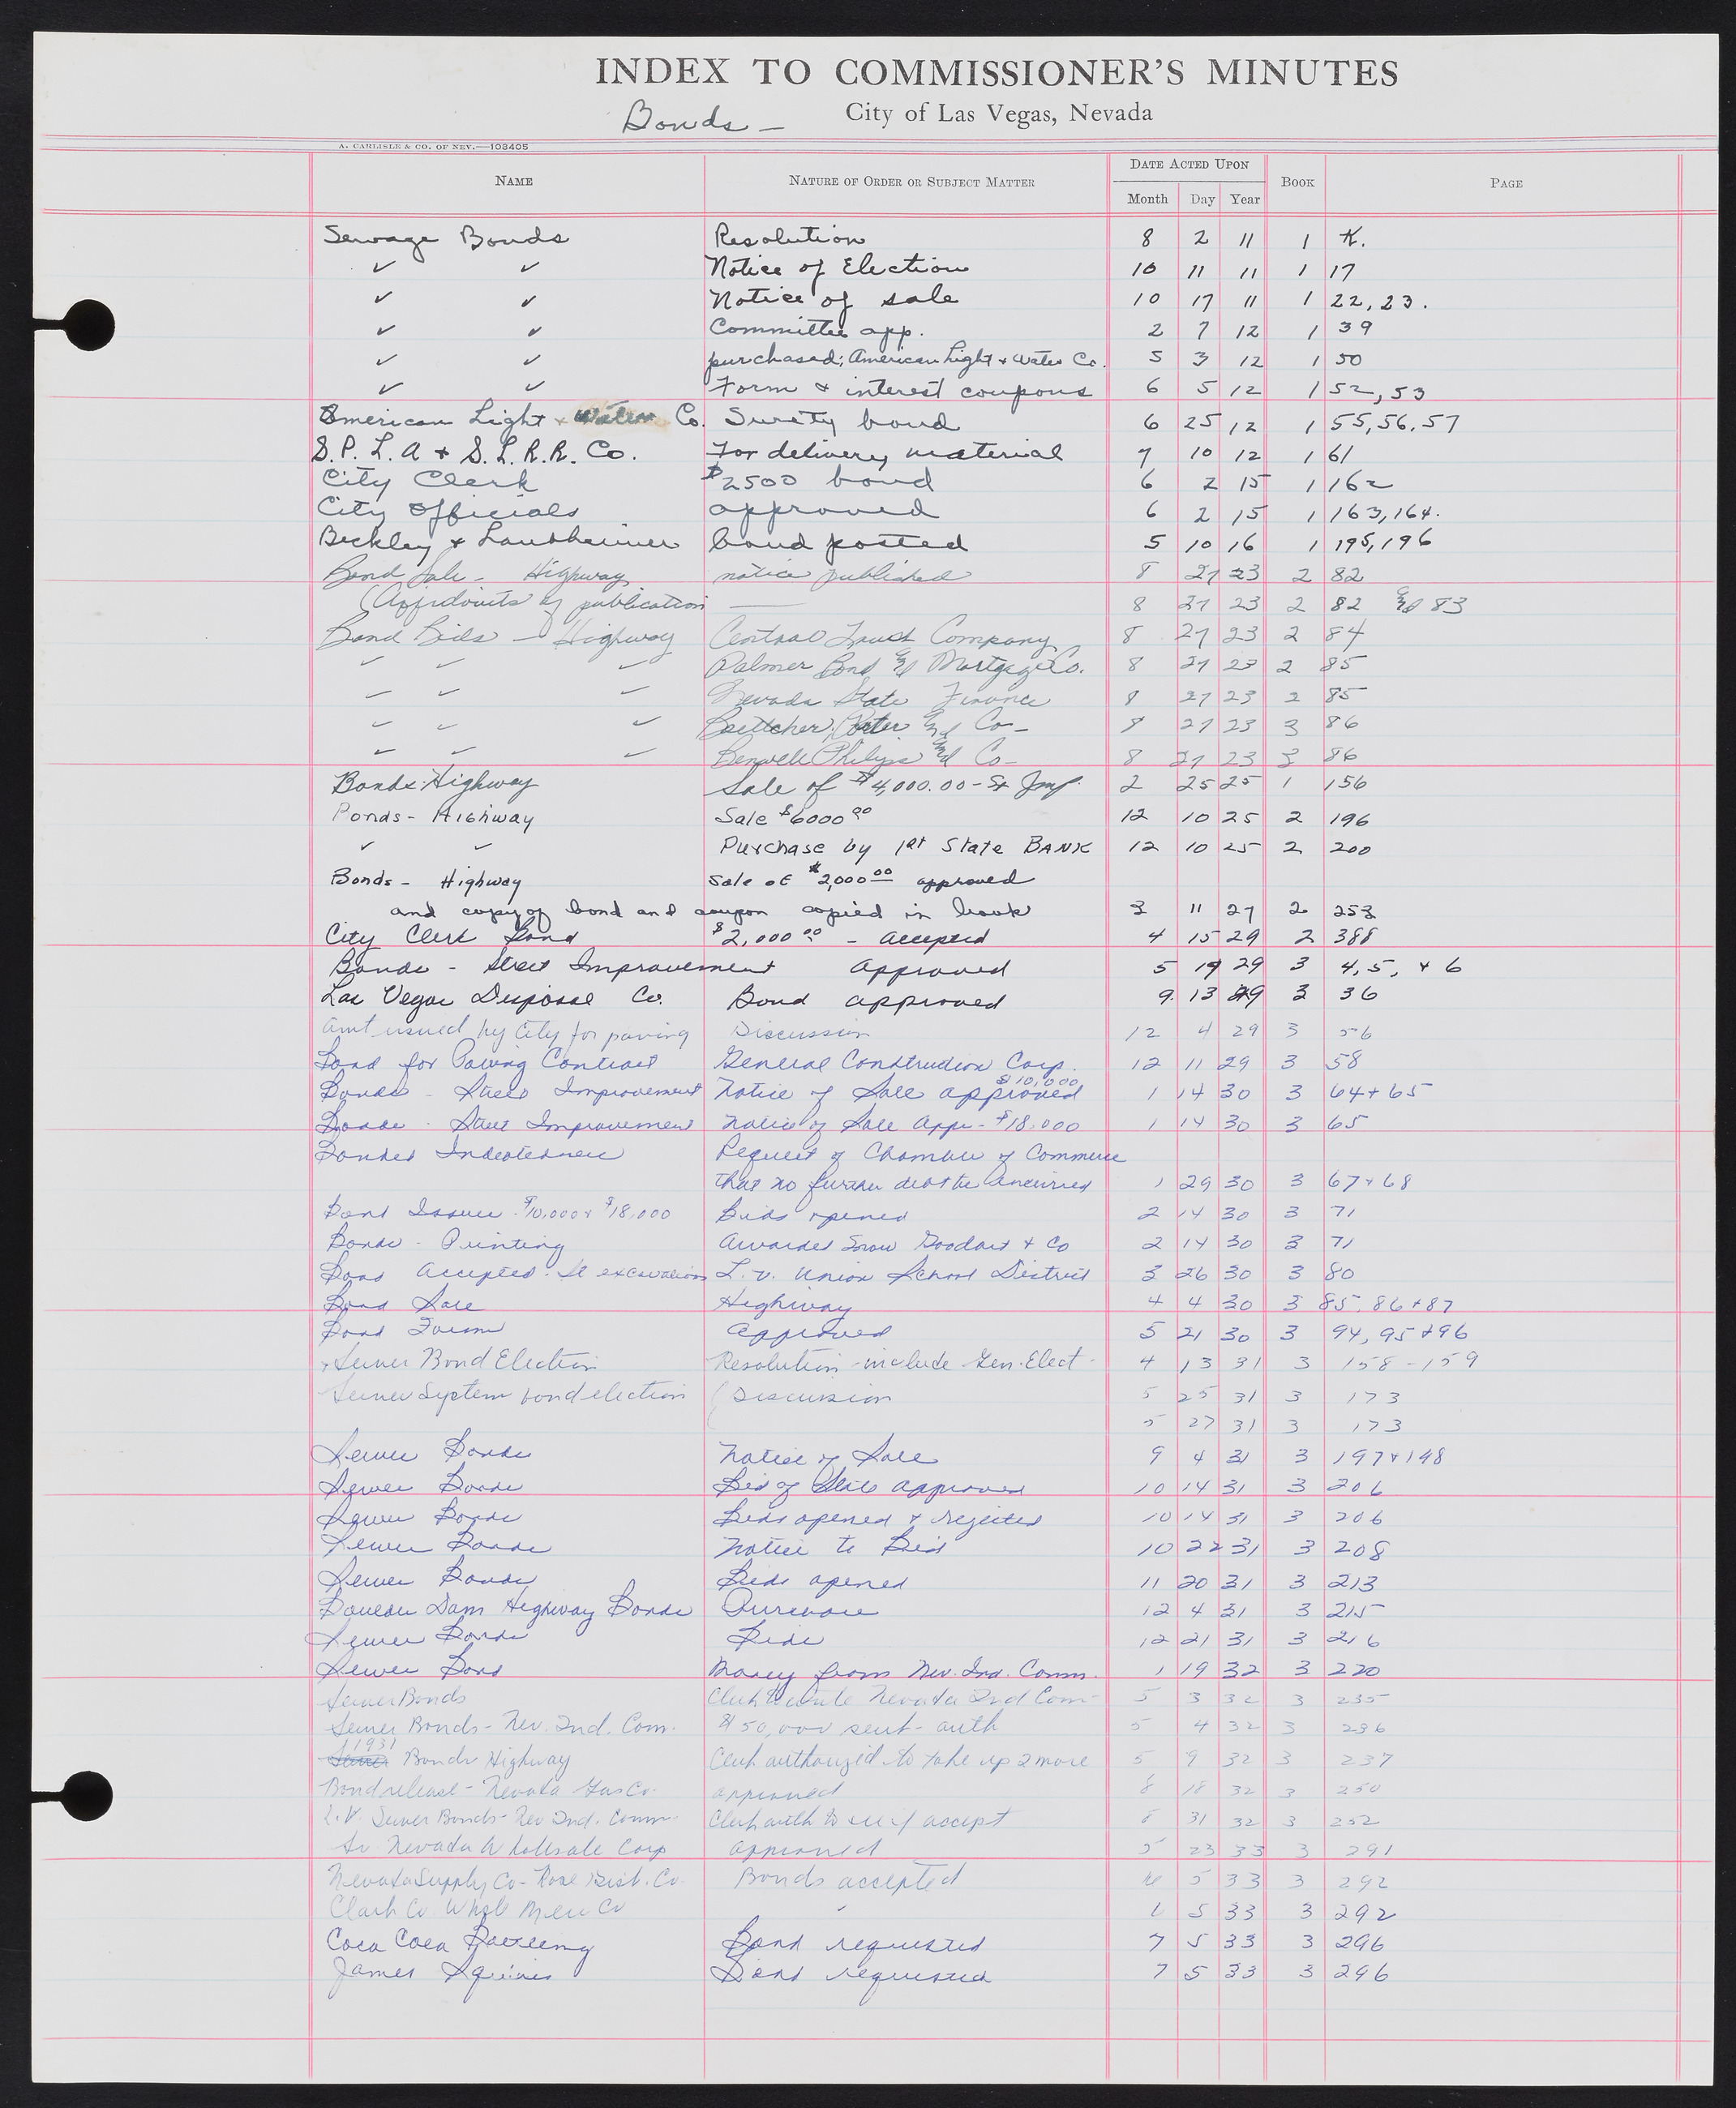 INDEX TO COMMISSIONER'S MINUTES
Bonds — City of Las Vegas, Nevada
A. CARLISLE & CO. OF NEV.—103405
NAME NATURE OF ORDER OR SUBJECT MATTER DATE ACTED UPON BOOK PAGE
Month Day Year
Sewage Bonds Resolution 8 2 11 1 K.
✓ ✓ Notice of Election 10 11 11 1 17
✓ ✓ Notice of sale 10 17 11 1 22, 23.
✓ ✓ Committee app. 2 7 12 1 39
✓ ✓ purchased; American Light & Water Co. 5 3 12 1 50
✓ ✓ Form & interest coupons 6 5 12 1 52, 53
American Light & Water Co. Surety bond 6 25 12 1 55, 56, 57
S.P. L.A & S.L.R.R. Co. For delivery material 7 10 12 1 61
City Clerk $2500 bond 6 2 15 1 162
City Officials approved 6 2 15 1 163, 164.
Beckley & Laubheimer bond posted 5 10 16 1 195, 196
Bond Sale - Highway notice published 8 27 23 2 82
(Affidavits of publication — 8 27 23 2 82 and 83
Bond Bids - Highway Central Trust Company 8 27 23 2 84
✓ ✓ ✓ Palmer Bond and Mortgage Co. 8 27 23 2 85
✓ ✓ ✓ Nevada State Finance 8 27 23 2 85
✓ ✓ ✓ Boettcher, Porter and Co— 8 27 23 3 86
✓ ✓ ✓ Benwell Philips and Co— 8 27 23 3 86
Bonds-Highway Sale of $4,000.00 - St Imp. 2 25 25 1 156
Bonds - Highway Sale $6000 00 12 10 25 2 196
✓ ✓ Purchase by 1st State BANK 12 10 25 2 200
Bonds - Highway Sale of $2,000 00 approved
and copy of bond and coupon copied in book 3 11 27 2 253
City Clerk Bond $2,000 00 - accepted 4 15 29 2 388
Bonds - Street Improvement Approved 5 19 29 3 4, 5, & 6
Las Vegas Disposal Co. Bond approved 9 13 29 3 36
Amt issued by City for paving Discussion 12 4 29 3 56
Bond for Paving Contract General Construction Corp. 12 11 29 3 58
Bonds - Street Improvement Notice of Sale approved $10,000 1 14 30 3 64 & 65
Bonds - Street Improvement Notice of Sale App. - $18,000 1 14 30 3 65
Bonded Indebtedness Request of Chamber of Commerce
that no further debt be incurred 1 29 30 3 67 & 68
Bond Issues - $10,000 & $18,000 Bids opened 2 14 30 3 71
Bonds - Printing Awarded Snow Goodart & Co 2 14 30 3 71
Bond Accepted - St excavations L.V. Union School District 3 26 30 3 80
Bond Sale Highway 4 4 30 3 85, 86 & 87
Bond Form Approved 5 21 30 3 94, 95 & 96
Sewer Bond Election Resolution - include Gen. Elect - 4 13 31 3 158-159
Sewer System bond election (Discussion 5 25 31 3 173
5 27 31 3 173
Sewer Bonds Notice of Sale 9 4 31 3 197 & 198
Sewer Bonds Bid of State approved 10 14 31 3 206
Sewer Bonds Bids opened & rejected 10 14 31 3 206
Sewer Bonds Notice to Bid 10 22 31 3 208
Sewer Bonds Bids opened 11 20 31 3 213
Boulder Dam Highway Bonds Purchase 12 4 31 3 215
Sewer Bonds Bids 12 21 31 3 216
Sewer Bond Money from Nev. Ind. Comm. 1 19 32 3 220
Sewer Bonds Clerk to write Nevada Ind Com— 5 3 32 3 235
Sewer Bonds - Nev. Ind. Com. $50,000 sent - auth 5 4 32 3 236
1931
Sewer Bonds Highway Clerk authorized to take up 2 more 5 9 32 3 237
Bond release - Nevada Gas Co. approved 8 18 32 3 250
L.V. Sewer Bonds - Nev Ind. Comm. Clerk auth to see if accept 8 31 32 3 252
So. Nevada Wholesale Corp approved 5 23 33 3 291
Nevada Supply Co - Rose Dist. Co. Bonds accepted 6 5 33 3 292
Clark Co. Whole Merc Co ✓ 6 5 33 3 292
Coca Cola Bottling Bond requested 7 5 33 3 296
James Squires Bond requested 7 5 33 3 296